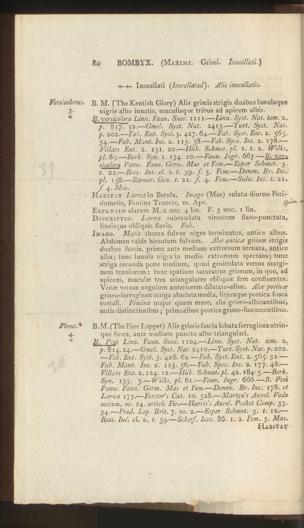 82 BOMBYX. (Maximi. Grisei. Inocellati.)
++ Inocellati (Inocellated). Alis inocellatis.
Versicolorus. B. M. (The Kentish Glory) Alis griseis strigis duabus lunulaque
3. nigris albo innatis, maculisque tribus ad apicem albis.
* B. versicolora Linn. Faun. Suec. 1211.—Linn. Syst. Nat. tom. 2.
p. 817. 32.—Gmel. Syst. Nat. 2413.—Turt. Syst. Nat.
p. 202.—Fab. Ent. Syst. 3. 427. 64.—Fab. Syst. Ent. 2. 565.
34.—Fab. Mant. Ins. 2. 113. 58.—Fab. Spec. Ins. 2. 178.—
Villars Ent. 2. 131. 20.—Hüb. Schmet. pl. 1 1. 2. Wilks,
pl. 85.—Berk. Syn. 1. 134. 10.—Faun. Ingr. 667.—B. versicolora
Pann. Faun. Germ. Mas et Fem.—Esper Schmet. 3.
t. 22.—Roes. Ins. cl. 2. t. 39. f. 3. Fem.—Donov. Br. Ins.
pl. 158.—Ramer. Gen. t. 21. f. 4. Fem.—Sulz. Ins. t. 21.
f. 4. Mas.
Habitat Larva in Betula. Imago (Mas) volatu diurno Peridumetis,
Femina Truncis, m. Apr.
Expansio alarum M. 2 unc. 4 lin. F. 3 unc. 1 lin.
Descriptio. Larva subcaudata virescens flavo-punctata,
lineisque obliquis flavis. Fab.
Imago. Maris thorax fulvus nigro terminatus, antice albus.
Abdomen valde hirsutum fulvum. Alæ anticæ griseæ strigis
duabus fuscis, prima ante medium extrorsum arcuata, antice
alba; tunc lunula nigra in medio extrorsum spectans; tunc
striga secunda pone medium, quasi geniculata versus marginem
tenuiorem: tunc spatium saturatius griseum, in quo, ad
apicem, maculæ tres triangulares obliquæ fere confluentes.
Venæ versus angulum anteriorem dilatato-albæ. Alæ posticæ
griseo-ferrugineæ striga obsoleta media, lituraque postica fusca
notatis. Femina major quam mare, alis griseo-albicantibus,
notis distinctionibus; primoribus postice griseo-fuscescentibus.
Pinus. B. M. (The Pine Lappet) Alis griseis fascia lobata ferruginea utrinque
4. fusca, ante medium puncto albo triangulari.
B. Pini Linn. Faun. Suec. 1104.—Linn. Syst. Nat. tom. 2.
p. 814. 24.—Gmel. Syst. Nat. 2410.—Turt. Syst. Nat. p. 202.
—Fab. Ent. Syst. 3. 426. 62.—Fab. Syst. Ent. 2. 565. 32.—
Fab. Mant. Ins. 2. 113. 56.—Fab. Spec. Ins. 2. 177. 48.—
Villars Ent. 2. 124. 12.—Hüb. Schmet. pl. 42. 184-5.—Berk.
Syn. 133. 5.—Wilks, pl. 61.—Faun. Ingr. 666.—B. Pini
Pann. Faun. Germ. Mas et Fem.—Donov. Br. Ins. 178. et
Larva 177.—Forster's Cat. 10. 528.—Martyn's Aurel. Vade
mecum, no. 24. article Fir.—Harris's Aurel. Pocket Comp. 33.
34.—Prod. Lep. Brit. 7. no. 2.—Esper Schmet. 3. t. 12.—
Roes. Ins. cl. 2. t. 59.—Schæf. Icon. 86. 1. 2. Fem. 3. Mas.
Habitat